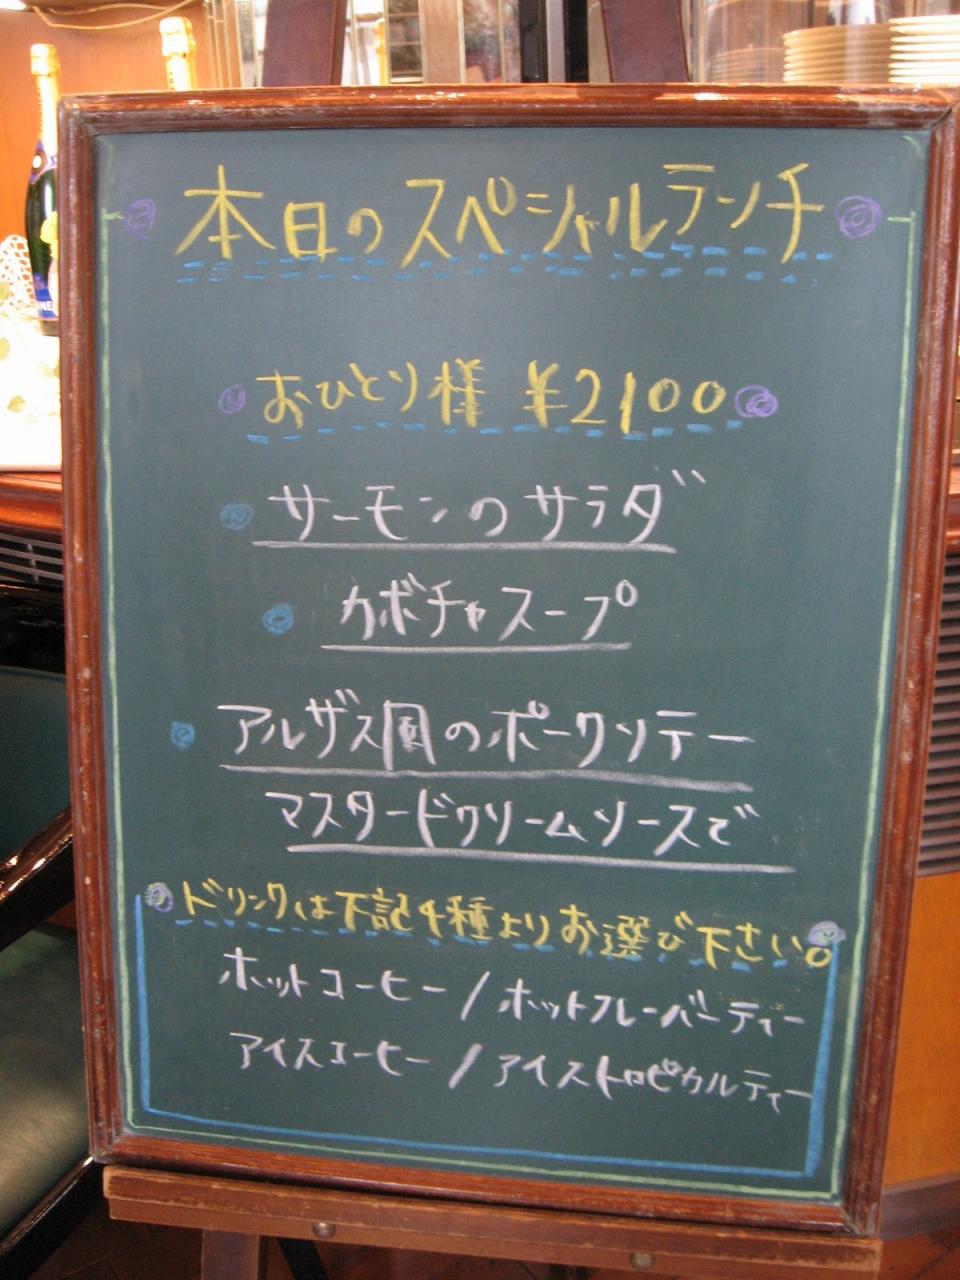 本日のスペシャルランチ
おひとり様 ¥2100
サーモンのサラダ
カボチャスープ
アルザス風のポークソテー
マスタードクリームソースで
ドリンクは下記4種よりお選び下さい。
ホットコーヒー/ホットフレーバーティー
アイスコーヒー/アイストロピカルティー